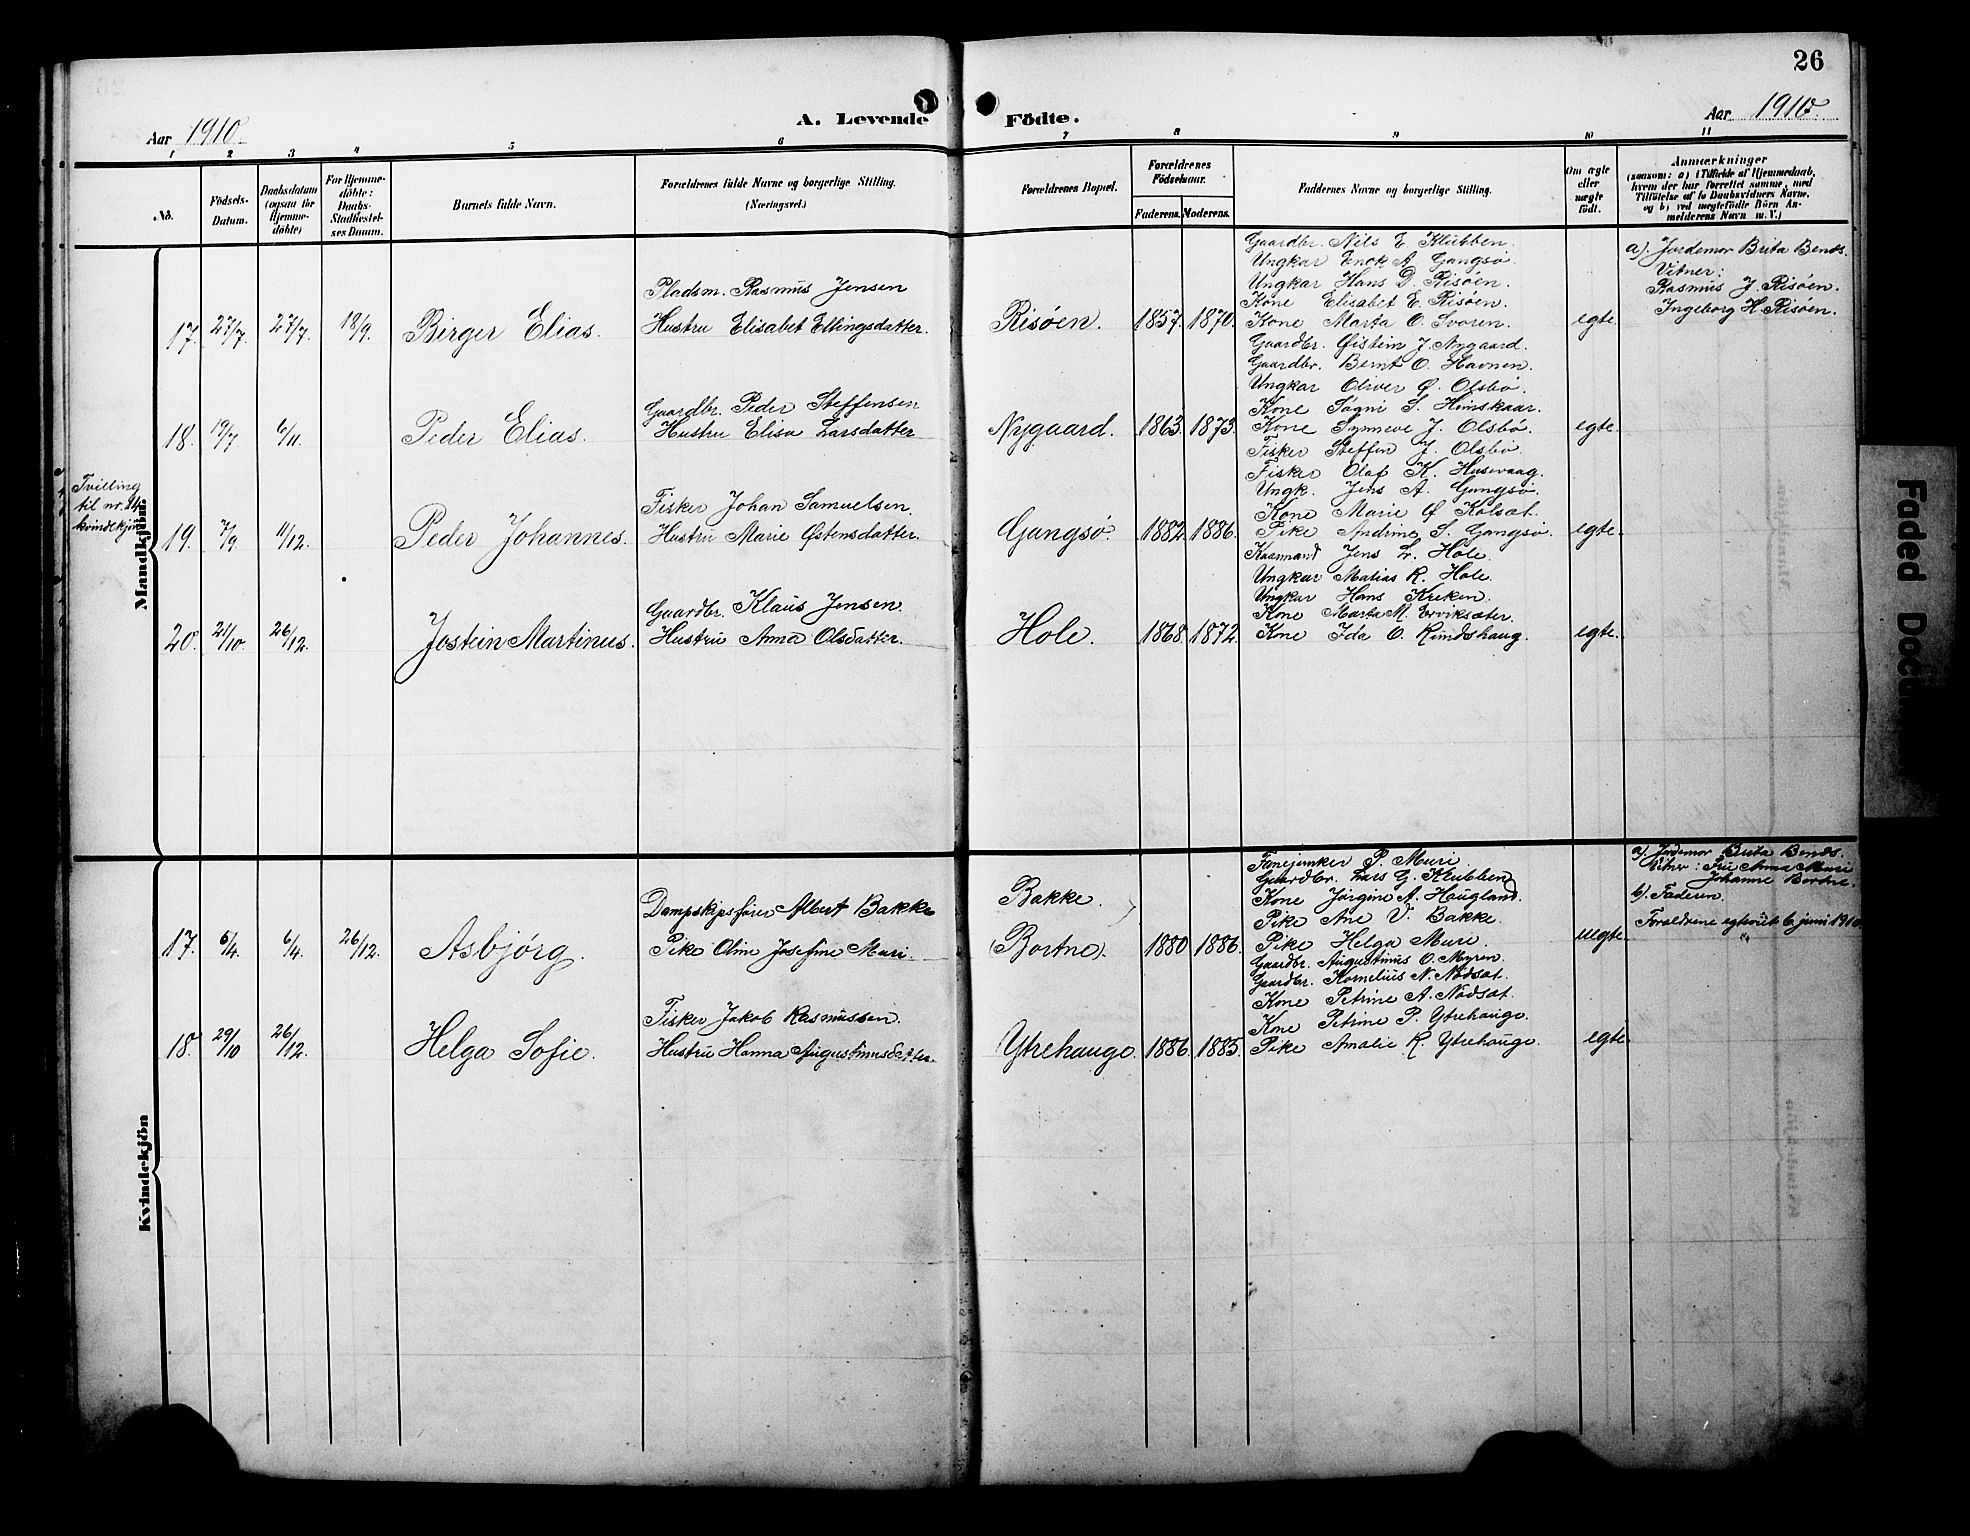 26
Aar 1910.
A. Levende Födte.
Aar 1910.
1 2 3 4 5 6 7 8 9 10 11
No.
Födsels-Datum.
Daabsdatum (ogsaa for Hjemme-döbte)
For Hjemme-döbte: Daabs-Stadfæstel-ses Datum.
Barnets fulde Navn.
Forældrenes fulde Navne og borgerlige Stilling. (Næringsvei.)
Forældrenes Bopæl.
Forældrenes Födselsaar.
Faderens. Moderens.
Faddernes Navne og borgerlige Stilling.
Om ægte eller uægte födt.
Anmærkninger
(saasom: a) i Tilfælde af Hjemmedaab,
hvem der har forrettet samme, med
Tilföielse af to Daabsvidners Navne,
og b) ved uægtefödte Börn An-
melderens Navn m. V.)
Mandkjön.
17. 27/7 27/7. 18/9. Birger Elias.
Pladsm. Rasmus Jensen
Hustru Elisabet Ellingsdatter.
Risöen. 1857. 1870.
Gaardbr. Nils E. Klubben.
Ungkar Enok A. Gangsö.
Ungkar Hans D. Risöen.
Kone Elisabet E. Risöen.
Kone Marta O. Svoren.
egte.
a). Jordemor Brita Bends.
Vitner:
Rasmus J. Risöen.
Ingeborg H. Risöen.
18. 19/7 6/11. Peder Elias.
Gaardbr. Peder Steffensen
Hustru Elisa Larsdatter
Nygaard. 1863. 1873.
Gaardbr. Øistein J. Nygaard.
Gaardbr. Bernt O. Havnen.
Ungkar Oliver Ø. Olsbö.
Kone Sogni S. Hinskaar.
Kone Synneve J. Olsbö.
egte.
Tvilling
til nr. 14
kvindekjön
19. 7/9. 11/12. Peder Johannes.
Fisker Johan Samuelsen.
Hustru Marie Østensdatter.
Gangsö. 1882. 1886.
Fisker Steffen J. Olsbö
Fisker Olaf K. Husevaag.
Ungk. Jens A. Gangsö.
Kone Marie Ø. Kolset.
Pike Andrine S. Gangsö.
egte.
20. 21/10. 26/12. Jostein Martinus.
Gaardbr. Klaus Jensen.
Hustru Anna Olsdatter.
Hole. 1868. 1872.
Kaarmand Jens L. Hole.
Ungkar Matias R. Hole.
Ungkar Hans Kreken.
Kone Marta M. Ervikseter.
Kone Ida O. Rimdshaug.
egte.
Kvindekjön
17. 5/4. 6/4. 26/12. Asbjørg.
Dampskipsförer Albert Bakke
Pike Oline Josefine Muri.
Bakke.
(Bortne). 1880. 1886.
Fanejunker P. Muri.
Gaardbr. Lars G. Klubben
Kone Jørgine A. Haugland.
Pike Ane V. Bakke.
Pike Helga Muri.
uegte.
a). Jordemor Brita Bends.
Vitner: Fru Anna Muri
Johanne Bortne.
b). Faderen.
Foreldrene egteviet 6 juni 1910.
18. 29/10 26/12. Helga Sofie.
Fisker Jakob Rasmussen.
Hustru Hanna Augustinusdatter.
Ytrehauge. 1886. 1885.
Gaardbr. Augustinus O. Myren.
Gaardbr. Kornelius N. Nödset.
Kone Petrine A. Nödset.
Kone Petrine P. Ytrehauge.
Pike Amalie R. Ytrehauge.
egte.
Faded Doc